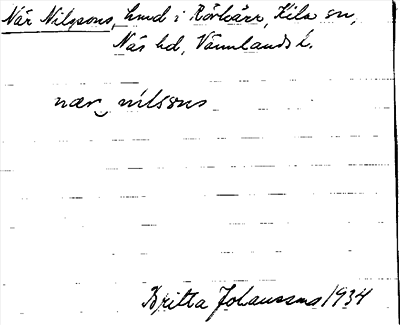 När Nilssons, hmd i Rörkärr, Kila sn,
Näs hd, Värmlands l.
nær‿ nilsons
Britta Johansson 1934